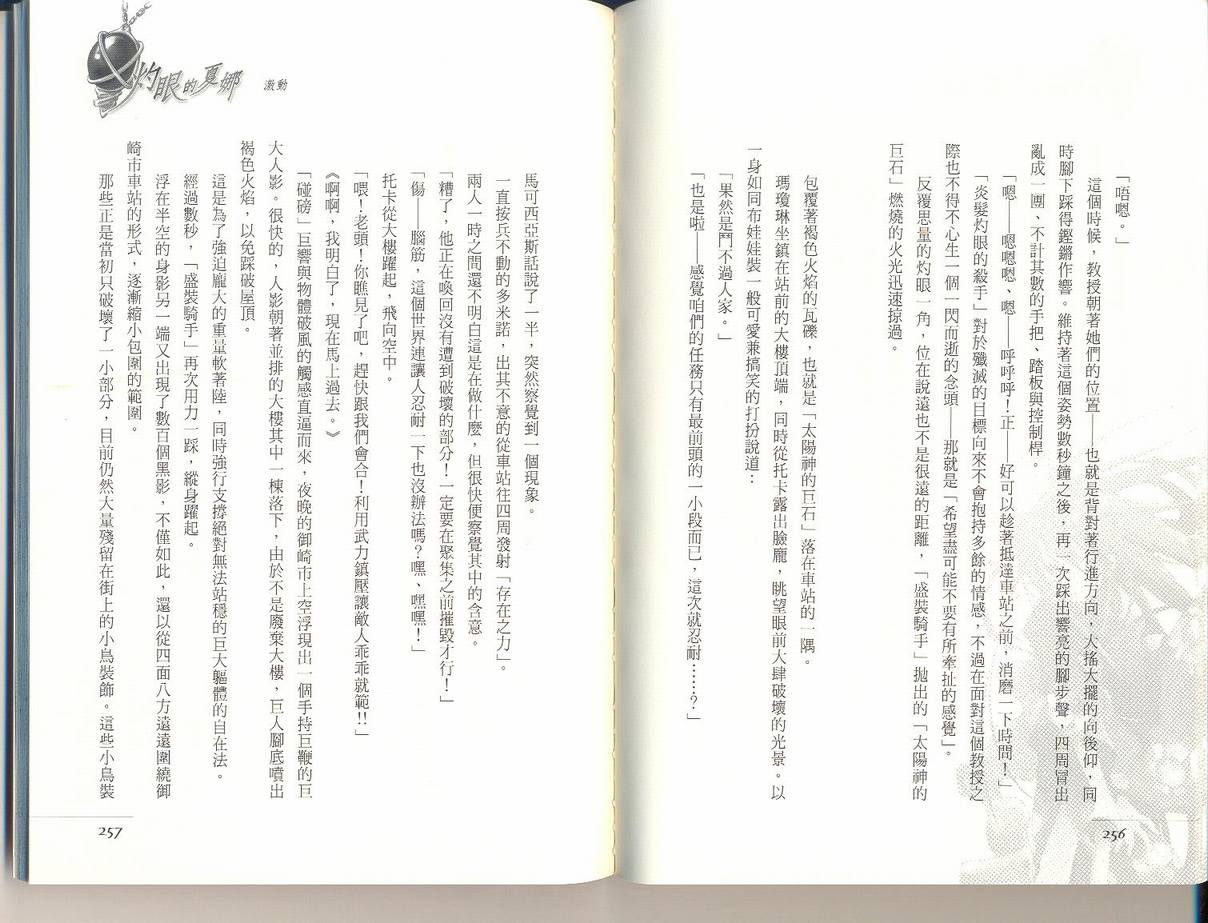 「唔嗯。」
這個時候，教授朝著她們的位置——也就是背對著行進方向，大搖大擺的向後仰，同
時腳下踩得鏗鏘作響。維持著這個姿勢數秒鐘之後，再一次踩出響亮的腳步聲，四周冒出
亂成一團、不計其數的手把、踏板與控制桿。
「嗯——嗯嗯嗯、嗯——呼呼呼！正——好可以趁著抵達車站之前，消磨一下時間！」
「炎髮灼眼的殺手」對於殲滅的目標向來不會抱持多餘的情感，不過在面對這個教授之
際也不得不心生一個一閃而逝的念頭——那就是「希望盡可能不要有所牽扯的感覺」。
反覆思量的灼眼一角，位在說遠也不是很遠的距離，「盛裝騎手」拋出的「太陽神的
巨石」燃燒的火光迅速掠過。
包覆著褐色火焰的瓦礫，也就是「太陽神的巨石」落在車站的一隅。
瑪瓊琳坐鎮在站前的大樓頂端，同時從托卡露出臉龐，眺望眼前大肆破壞的光景。以
一身如同布娃娃裝一般可愛兼搞笑的打扮說道：
「果然是鬥不過人家。」
「也是啦——感覺咱們的任務只有最前頭的一小段而已，這次就忍耐……？」
256
灼眼的夏娜 激動
馬可西亞斯話說了一半，突然察覺到一個現象。
一直按兵不動的多米諾，出其不意的從車站往四周發射「存在之力」。
兩人一時之間還不明白這是在做什麼，但很快便察覺其中的含意。
「糟了，他正在喚回沒有遭到破壞的部分！一定要在聚集之前摧毀才行！」
「傷——腦筋，這個世界連讓人忍耐一下也沒辦法嗎？嘿、嘿嘿！」
托卡從大樓躍起，飛向空中。
「喂！老頭！你瞧見了吧，趕快跟我們會合！利用武力鎮壓讓敵人乖乖就範!!」
《啊啊，我明白了，現在馬上過去。》
「碰磅」巨響與物體破風的觸感直逼而來，夜晚的御崎市上空浮現出一個手持巨鞭的巨
大人影。很快的，人影朝著並排的大樓其中一棟落下，由於不是廢棄大樓，巨人腳底噴出
褐色火焰，以免踩破屋頂。
這是為了強迫龐大的重量軟著陸，同時強行支撐絕對無法站穩的巨大軀體的自在法。
經過數秒，「盛裝騎手」再次用力一踩，縱身躍起。
浮在半空的身影另一端又出現了數百個黑影，不僅如此，還以從四面八方遠遠圍繞御
崎市車站的形式，逐漸縮小包圍的範圍。
那些正是當初只破壞了一小部分，目前仍然大量殘留在街上的小鳥裝飾。這些小鳥裝
257